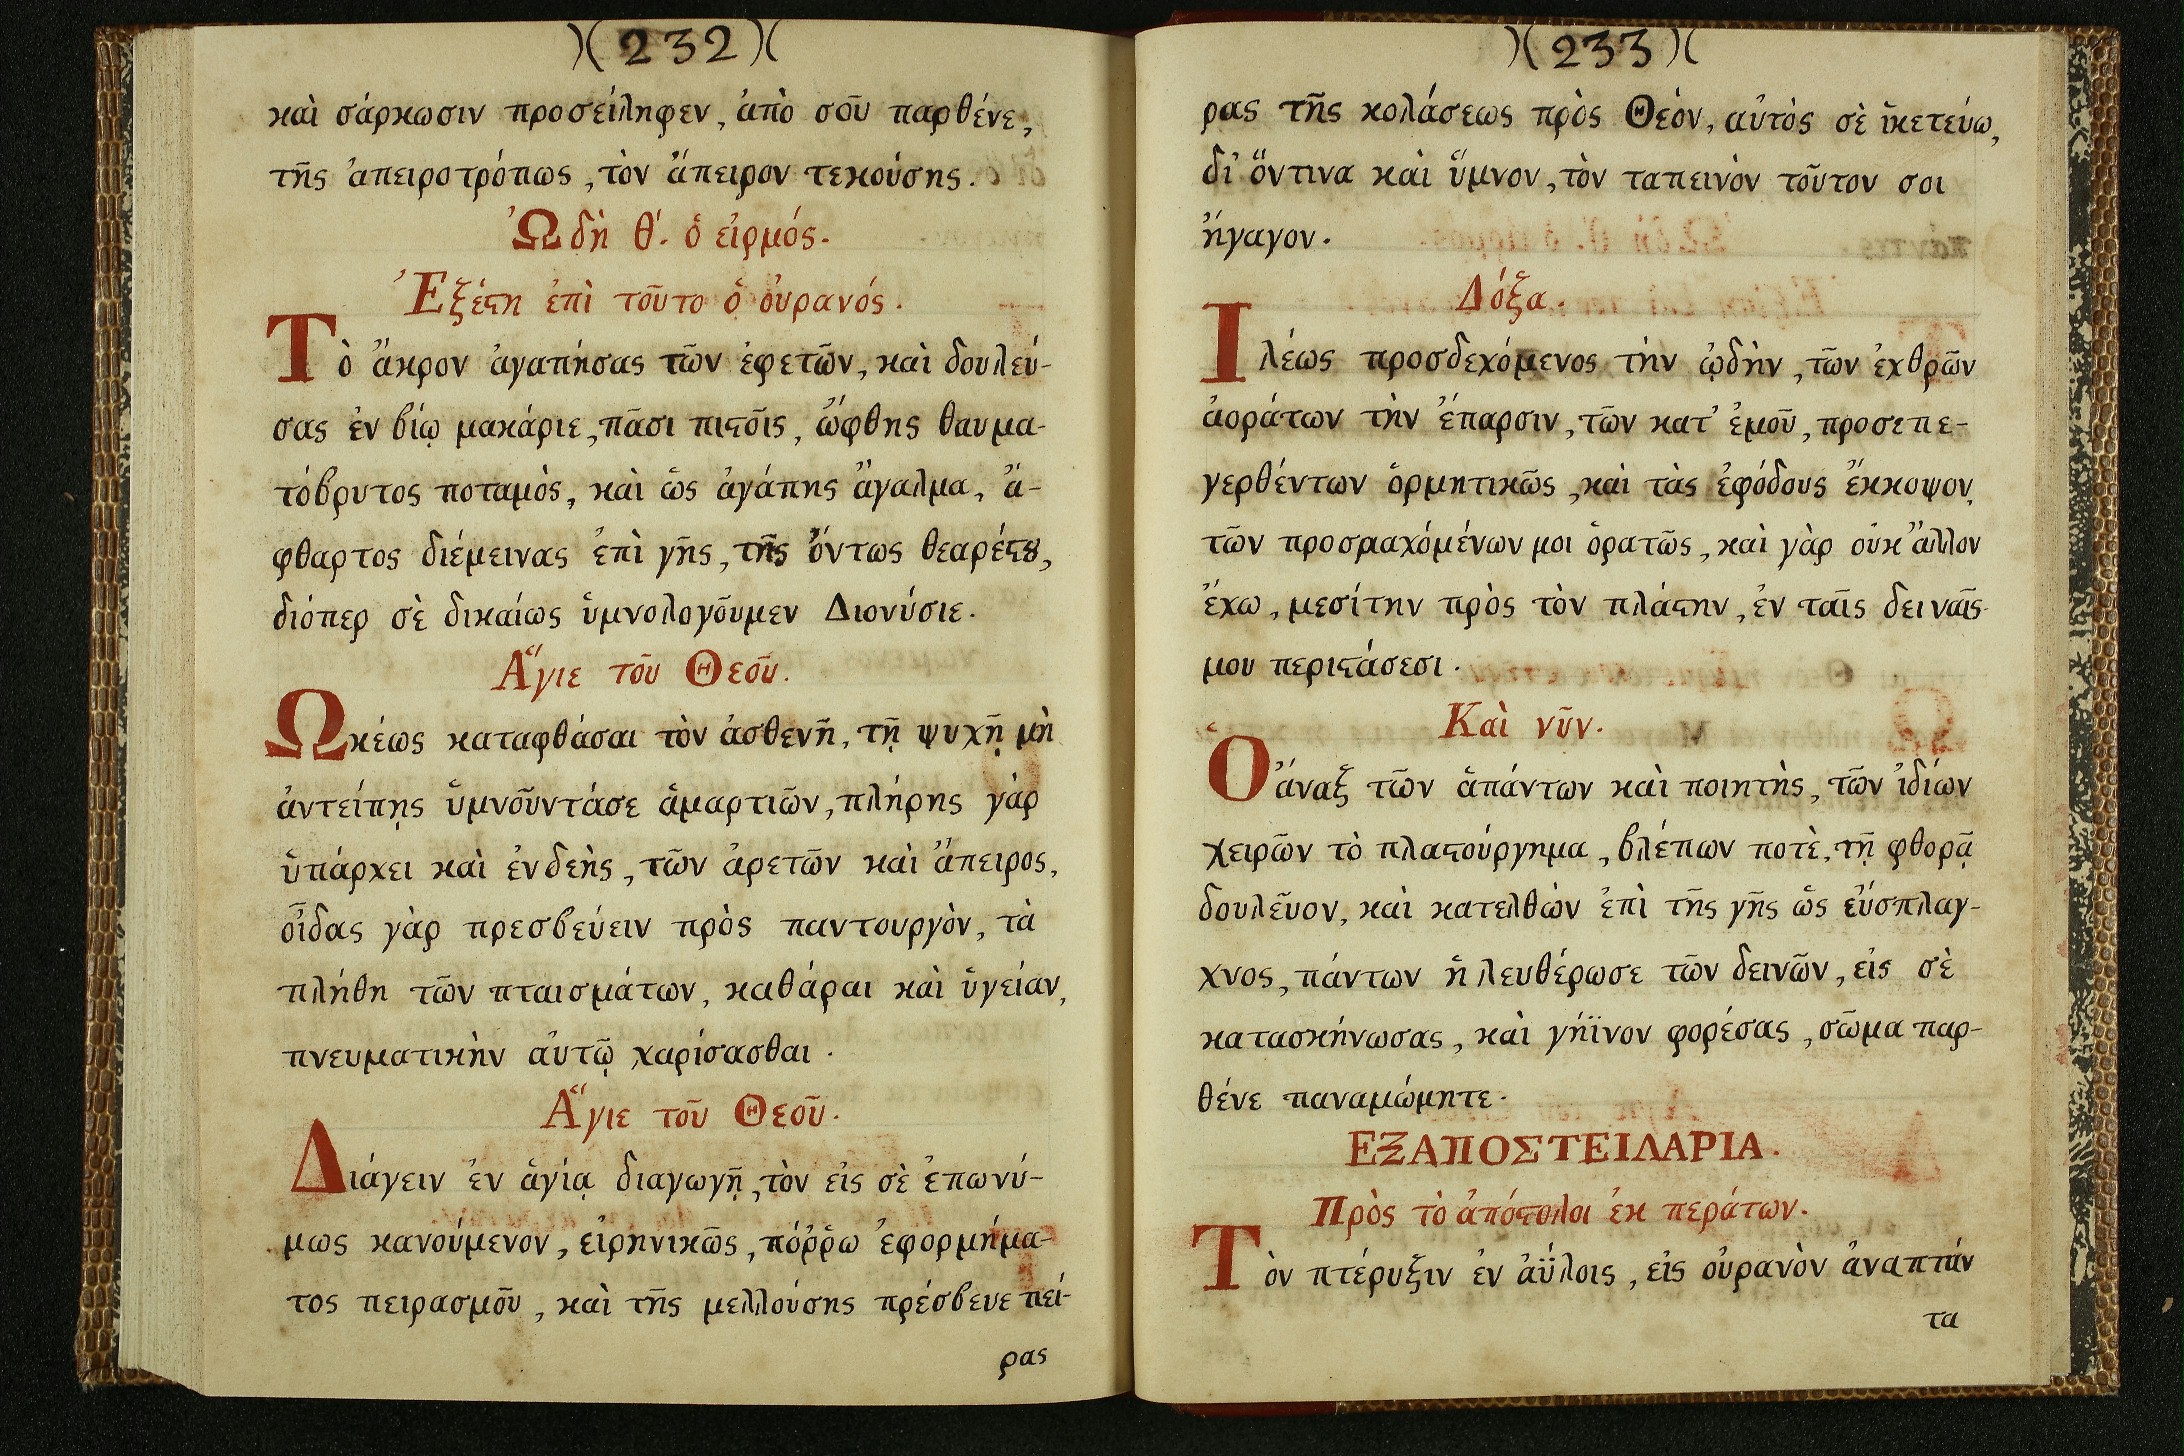 )(232)(
καὶ σάρκωσιν προσείληφεν, ἀπὸ σοῦ παρθένε,
τῆς ἀπειροτρόπως, τὸν ἄπειρον τεκούσης.
Ὠδὴ θ΄. ὁ εἱρμός.
Ἐξέϛη ἐπὶ τοῦτο ὁ οὐρανός.
Τὸ ἄκρον ἀγαπήσας τῶν ἐφετῶν, καὶ δουλεύ-
σας ἐν βίῳ μακάριε, πᾶσι πιϛοῖς, ὤφθης θαυμα-
τόβρυτος ποταμὸς, καὶ ὡς ἀγάπης ἄγαλμα, ἄ-
φθαρτος διέμεινας ἐπὶ γῆς, τῆς ὄντως θεαρέϛȣ,
διόπερ σὲ δικαίως ὑμνολογοῦμεν Διονύσιε.
Ἅγιε τοῦ Θεοῦ.
Ὠκέως καταφθάσαι τὸν ἀσθενῆ, τῇ ψυχῇ μὴ
ἀντείπῃς ὑμνοῦντάσε ἁμαρτιῶν, πλήρης γὰρ
ὑπάρχει καὶ ἐνδεὴς, τῶν ἀρετῶν καὶ ἄπειρος,
οἶδας γὰρ πρεσβεύειν πρὸς παντουργὸν, τὰ
πλήθη τῶν πταισμάτων, καθάραι καὶ ὑγείαν,
πνευματικὴν αὐτῷ χαρίσασθαι.
Ἅγιε τοῦ Θεοῦ.
Διάγειν ἐν ἁγίᾳ διαγωγῇ, τὸν εἰς σὲ ἐπωνύ-
μως κανούμενον, εἰρηνικῶς, πόῤῥω ἐφορμήμα-
τος πειρασμοῦ, καὶ τῆς μελλούσης πρέσβευε πεί-
ρας
)(233)(
ρας τῆς κολάσεως πρὸς Θεὸν, αὐτὸς σὲ ἱκετεύω,
δι᾿ ὅντινα καὶ ὕμνον, τὸν ταπεινὸν τοῦτον σοι
ἤγαγον.
Δόξα.
Ιλέως προσδεχόμενος τὴν ᾠδὴν, τῶν ἐχθρῶν
ἀοράτων τὴν ἔπαρσιν, τῶν κατ᾿ ἐμοῦ, προσεπε-
γερθέντων ὁρμητικῶς, καὶ τὰς ἐφόδους ἔκκοψον,
τῶν προσμαχόμένων μοι ὁρατῶς, καὶ γὰρ οὐκ ἄλλον
ἔχω, μεσίτην πρὸς τὸν πλάϛην, ἐν ταῖς δειναῖς
μου περιϛάσεσι.
Καὶ νῦν.
Ὁ ἄναξ τῶν ἁπάντων καὶ ποιητὴς, τῶν ἰδίων
χειρῶν τὸ πλαϛούργημα, βλέπων ποτὲ, τῇ φθορᾷ
δουλεῦον, καὶ κατελθὼν ἐπὶ τῆς γῆς ὡς εὔσπλαγ-
χνος, πάντων ἠλευθέρωσε τῶν δεινῶν, εἰς σὲ
κατασκήνωσας, καὶ γήϊνον φορέσας, σῶμα παρ-
θένε παναμώμητε.
ΕΞΑΠΟΣΤΕΙΛΑΡΙΑ.
Πρὸς τὸ ἀπόϛολοι ἐκ περάτων.
Τὸν πτέρυξιν ἐν ἀΰλοις, εἰς οὐρανὸν ἀναπτάν
τα